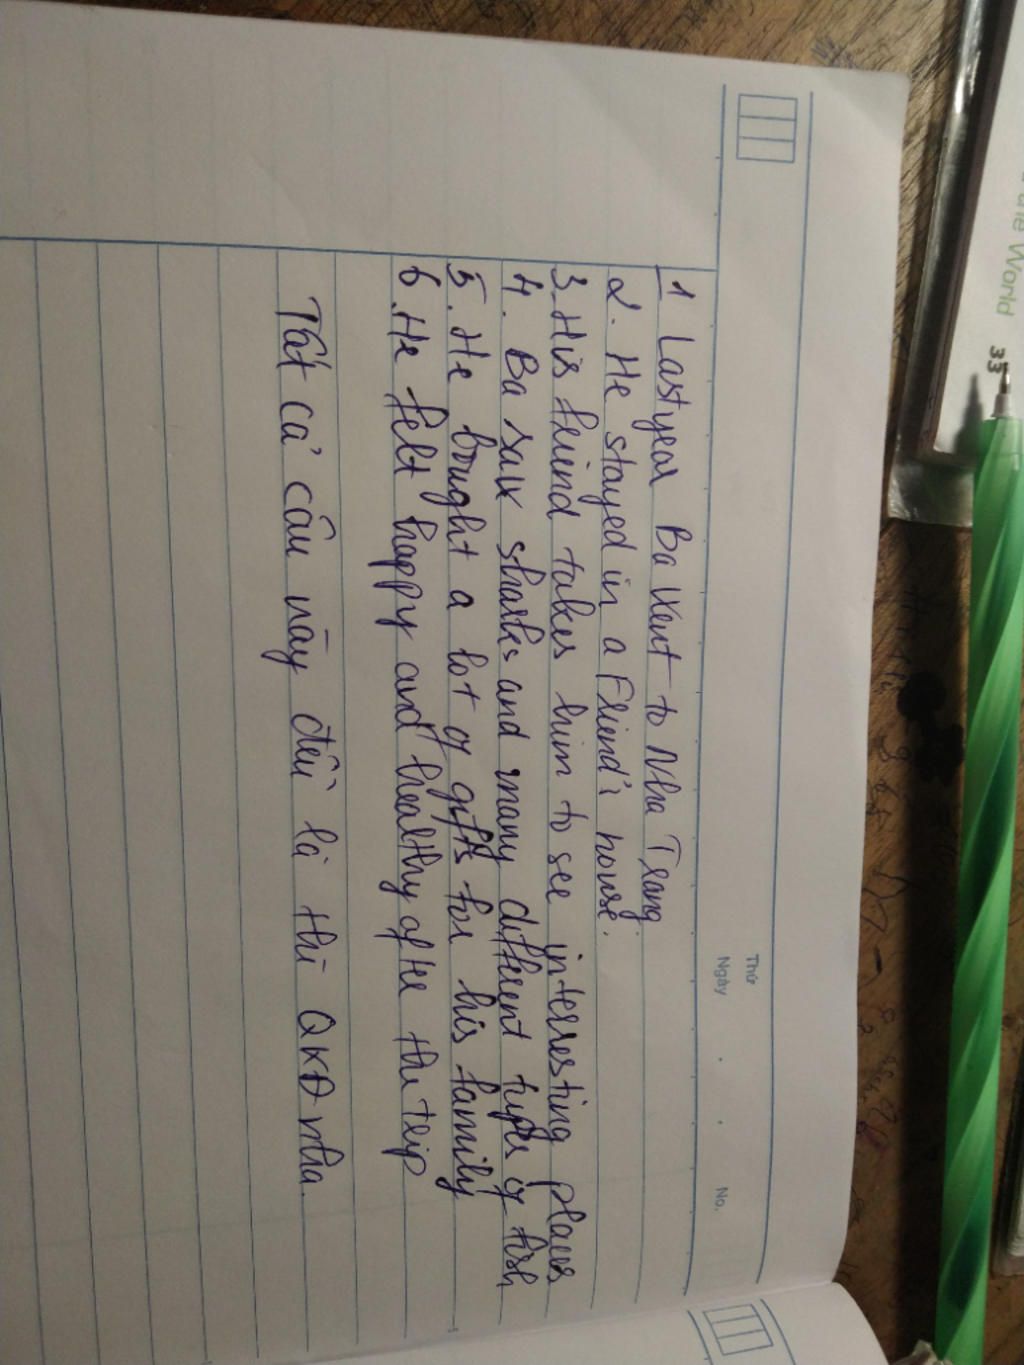 Thứ
Ngày . . No.
1 Last year Ba went to Nha Trang.
2. He stayed in a Friend's house.
3. His friend takes him to see interresting places
4. Ba saw sharks and many different types of fish
5. He bought a lot of gifts for his family
6. He felt happy and healthy after the trip
Tất cả câu này đều là thì QKĐ nha.
the World 33